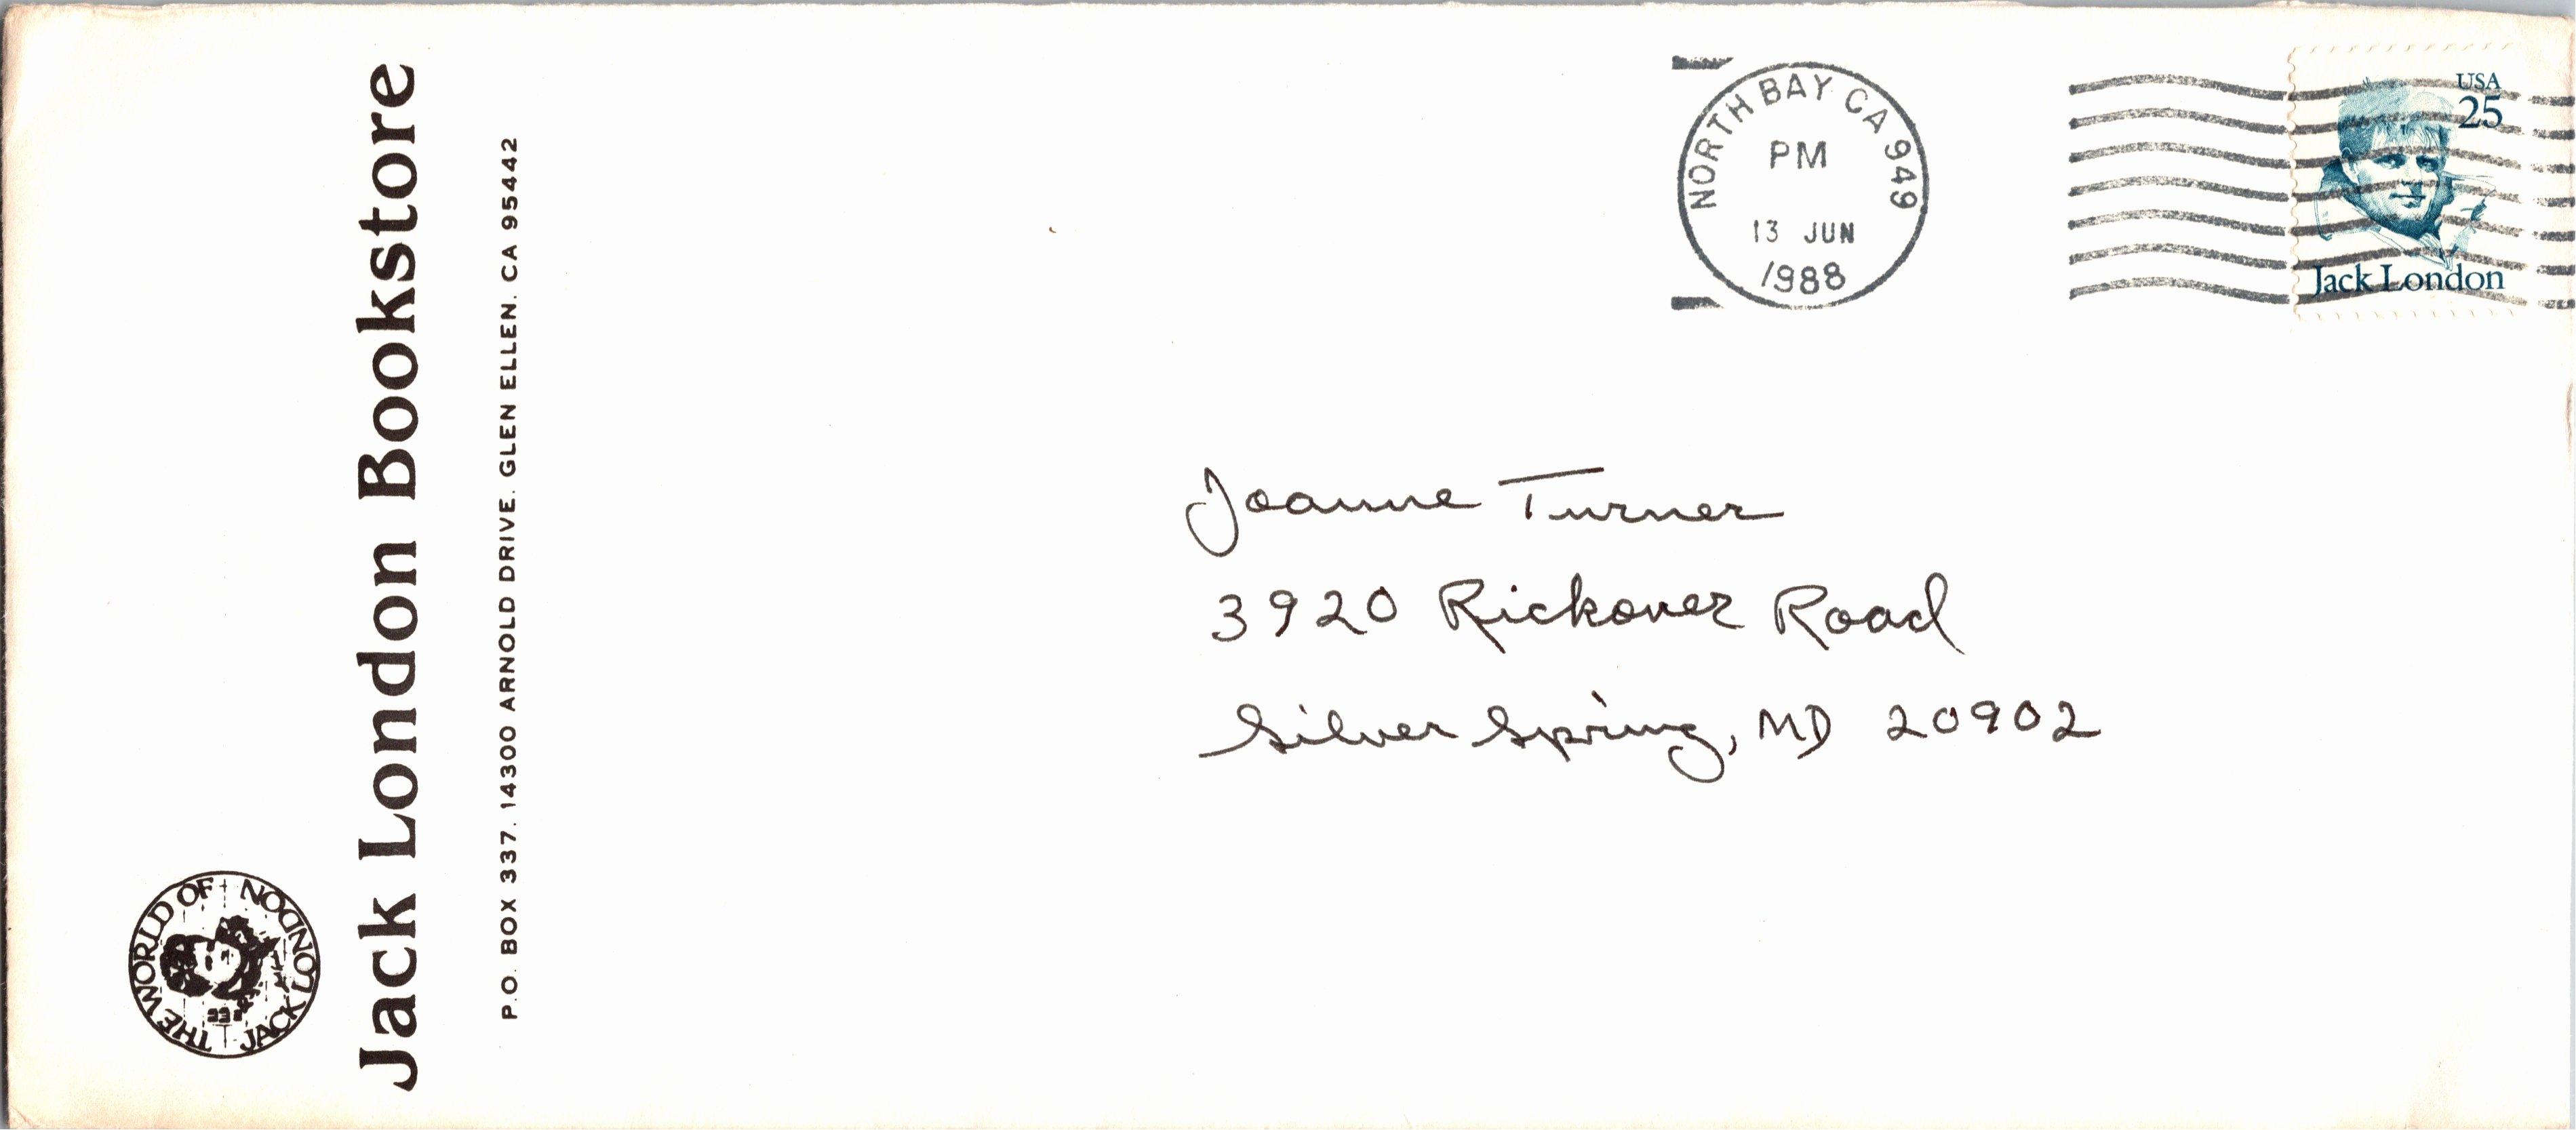 Jack London Bookstore
P.O. BOX 337, 14300 ARNOLD DRIVE, GLEN ELLEN, CA 95442
THE WORLD OF JACK LONDON
NORTH BAY CA 949
PM
13 JUN
1988
USA
25
Jack London
Joanne Turner
3920 Rickover Road
Silver Spring, MD 20902